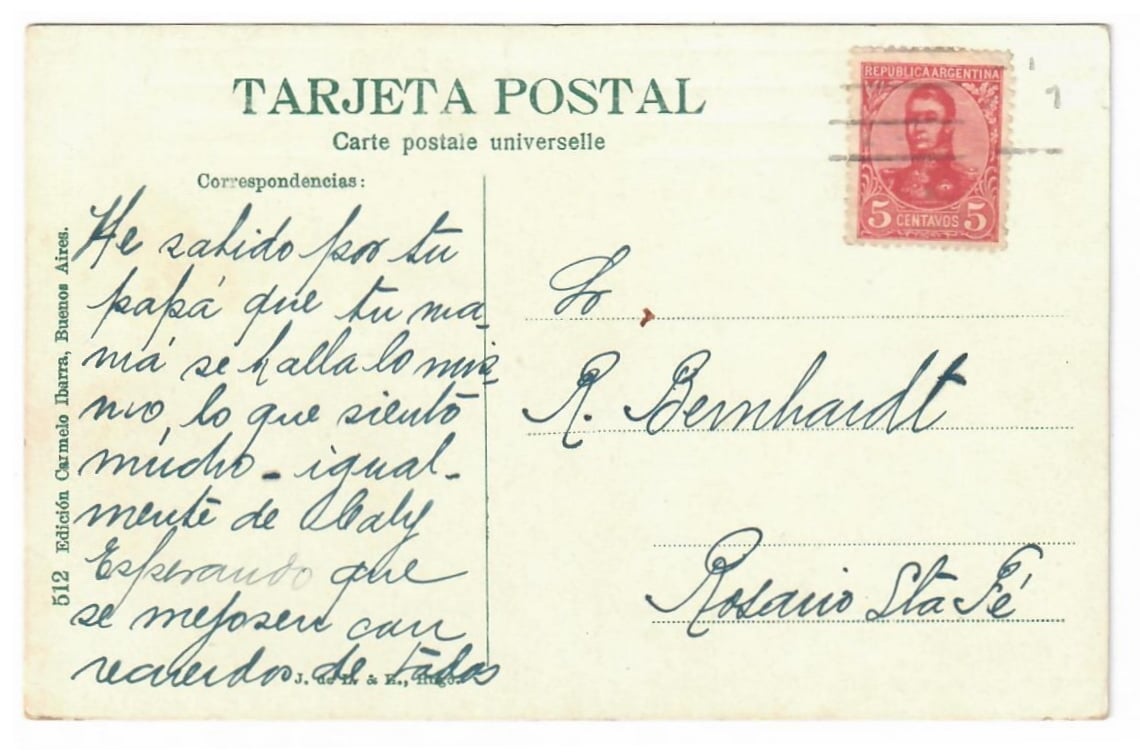 TARJETA POSTAL
Carte postale universelle
Correspondencias:
He sabido por tu
papá que tu ma-
má se halla lo mis-
mo, lo que siento
mucho - igual-
mente de
Esperando que
se mejoren con
recuerdos de todos
512 Edición Carmelo Ibarra, Buenos Aires.
J. de L. & E.,
REPUBLICA ARGENTINA
5 CENTAVOS 5
1
Sr
R. Bernhardt
Rosario Sta Fé